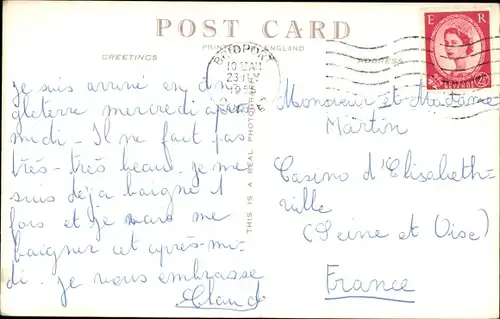 POST CARD
PRINTED IN ENGLAND
GREETINGS
ADDRESS
E R
BRIDPORT
10 15 AM
THIS IS A REAL PHOTOGRAPH
je suis arrivé en An
gleterre mercredi après
midi - Il ne fait pas
très-très beau. je me
suis déja baigné 1
fois et je vais me
baigner cet après-mi-
di. je vous embrasse
Claude
Monsieur et Madame
Martin
Casino d'Elisabeth-
ville
(Seine et Oise)
France